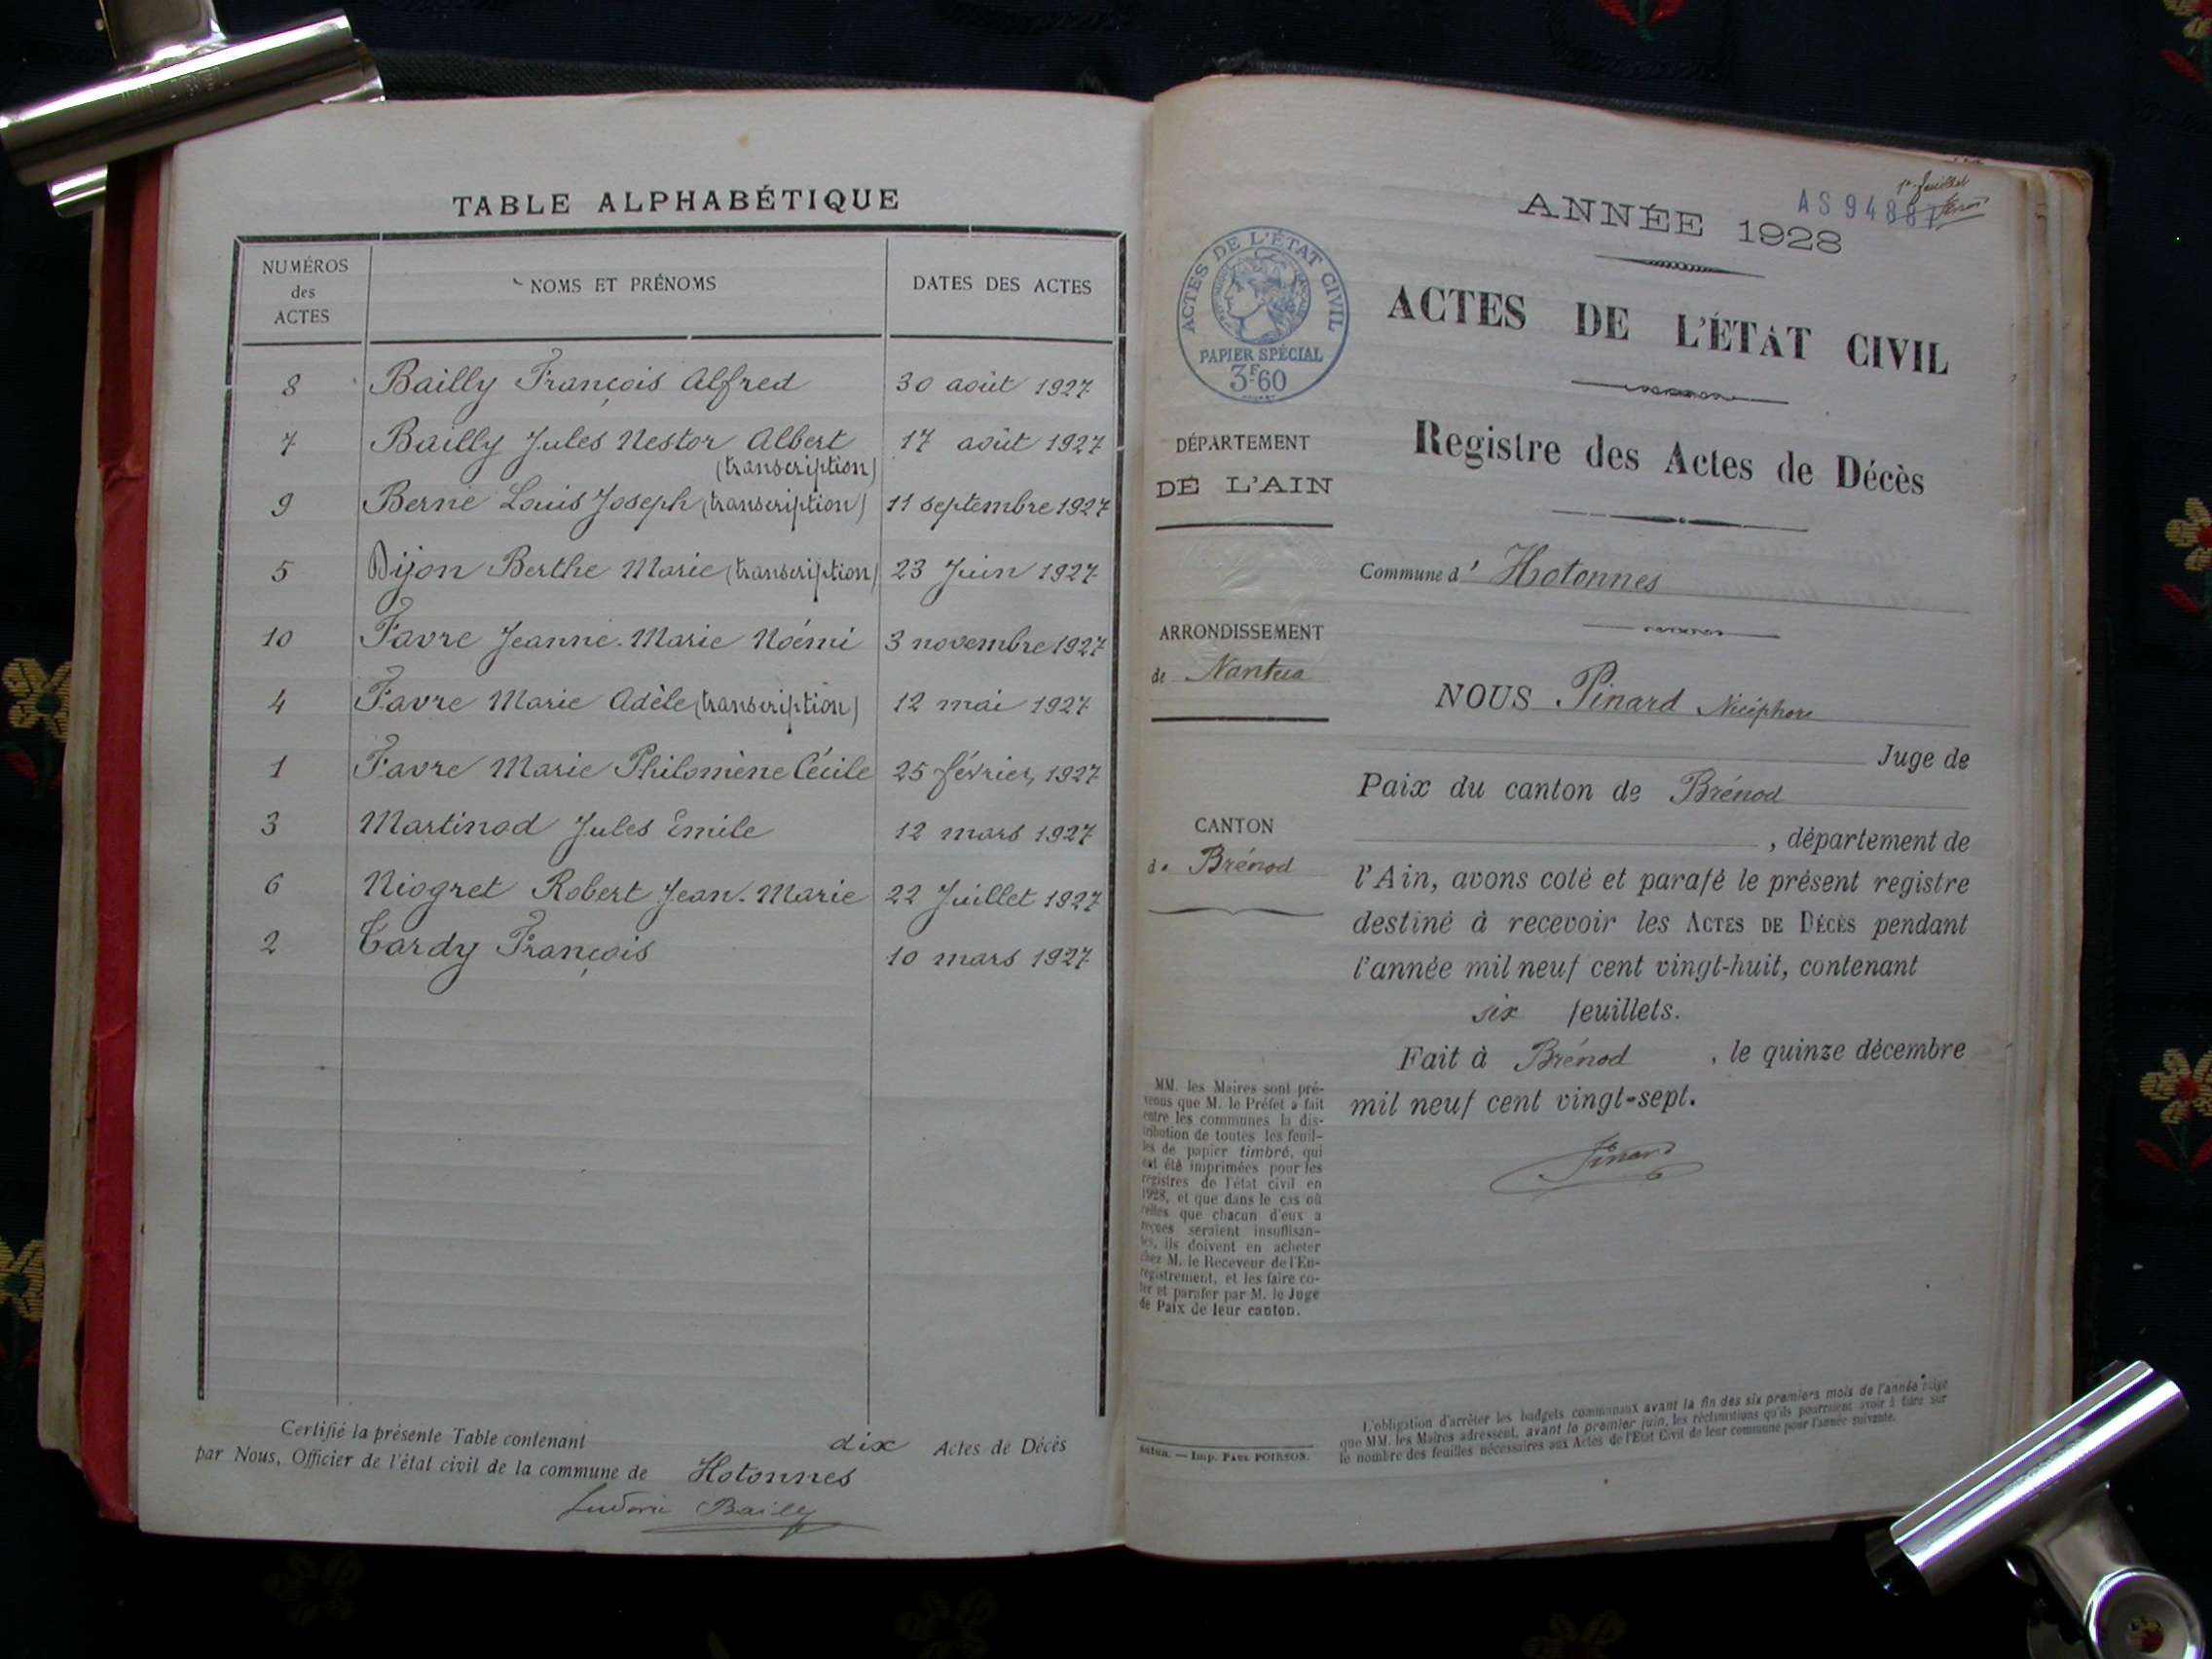 TABLE ALPHABÉTIQUE
NUMÉROS
des
ACTES
NOMS ET PRÉNOMS
DATES DES ACTES
8 Bailly François Alfred 30 août 1927
7 Bailly Jules Nestor Albert 17 août 1927
(transcription)
9 Berne Louis Joseph (transcription) 11 septembre 1927
5 Dijon Berthe Marie (transcription) 23 Juin 1927
10 Favre Jeanne-Marie Noémi 3 novembre 1927
4 Favre Marie Adèle (transcription) 12 mai 1927
1 Favre Marie Philomène Cécile 25 février 1927
3 Martinod Jules Emile 12 mars 1927
6 Niogret Robert Jean-Marie 22 Juillet 1927
2 Tardy François 10 mars 1927
Certifié la présente Table contenant dix Actes de Décès
par Nous, Officier de l'état civil de la commune de Hotonnes
Ludovic Bailly
1er feuillet
AS 9488
Pinard
ANNÉE 1928
ACTES DE L'ÉTAT CIVIL
PAPIER SPÉCIAL
3F60
ACTES DE L'ÉTAT CIVIL
Registre des Actes de Décès
DÉPARTEMENT
DE L'AIN
Commune d' Hotonnes
ARRONDISSEMENT
de Nantua
NOUS Pinard Nicéphore
Juge de
Paix du canton de Brénod
, département de
CANTON
de Brénod
l'Ain, avons coté et parafé le présent registre
destiné à recevoir les ACTES DE DÉCÈS pendant
l'année mil neuf cent vingt-huit, contenant
six feuillets.
Fait à Brénod , le quinze décembre
mil neuf cent vingt-sept.
Pinard
MM. les Maires sont pré-
venus que M. le Préfet a fait
entre les communes la dis-
tribution de toutes les feuil-
les de papier timbré, qui
ont été imprimées pour les
registres de l'état civil en
1928, et que dans le cas où
celles que chacun d'eux a
reçues seraient insuffisan-
tes, ils doivent en acheter
chez M. le Receveur de l'En-
registrement, et les faire co-
ter et parafer par M. le Juge
de Paix de leur canton.
Autun. — Imp. PAUL POIRSON.
L'obligation d'arrêter les budgets communaux avant la fin des six premiers mois de l'année exige
que MM. les Maires adressent, avant le premier juin, les réclamations qu'ils pourraient avoir à faire sur
le nombre des feuilles nécessaires aux Actes de l'État Civil de leur commune pour l'année suivante.